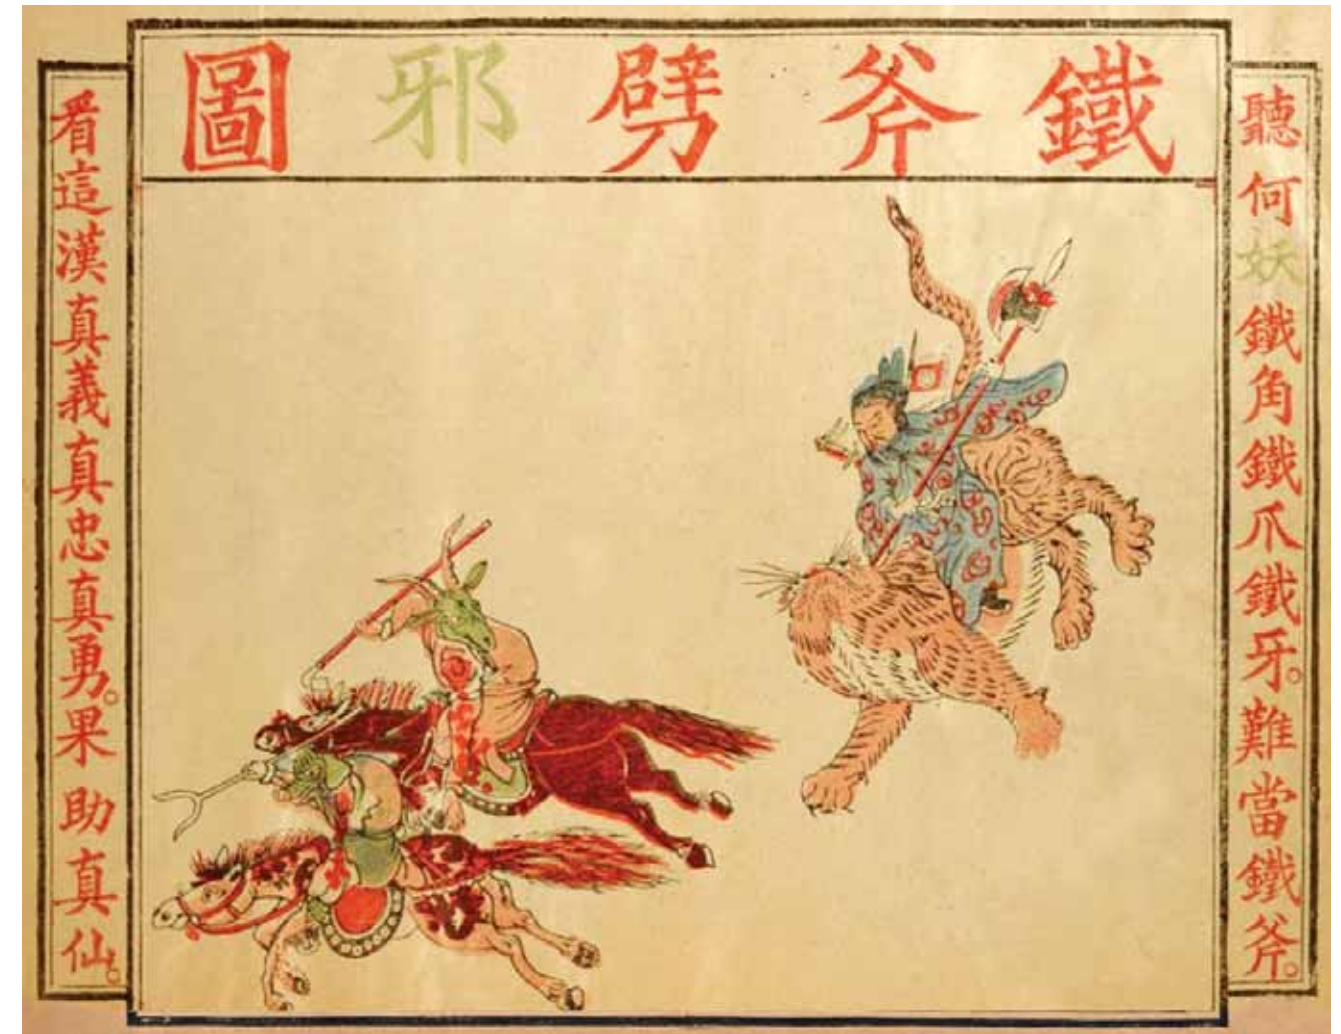 鐵斧劈邪圖
聽何妖鐵角鐵爪鐵牙。難當鐵斧。
看這漢真義真忠真勇。果助真仙。